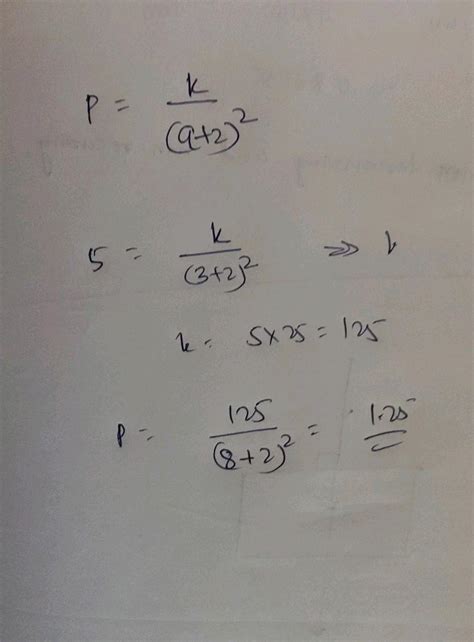 P = k/(q+2)²
5 = k/(3+2)² ⇒ k
k = 5×25 = 125
P = 125/(8+2)² = 1.25